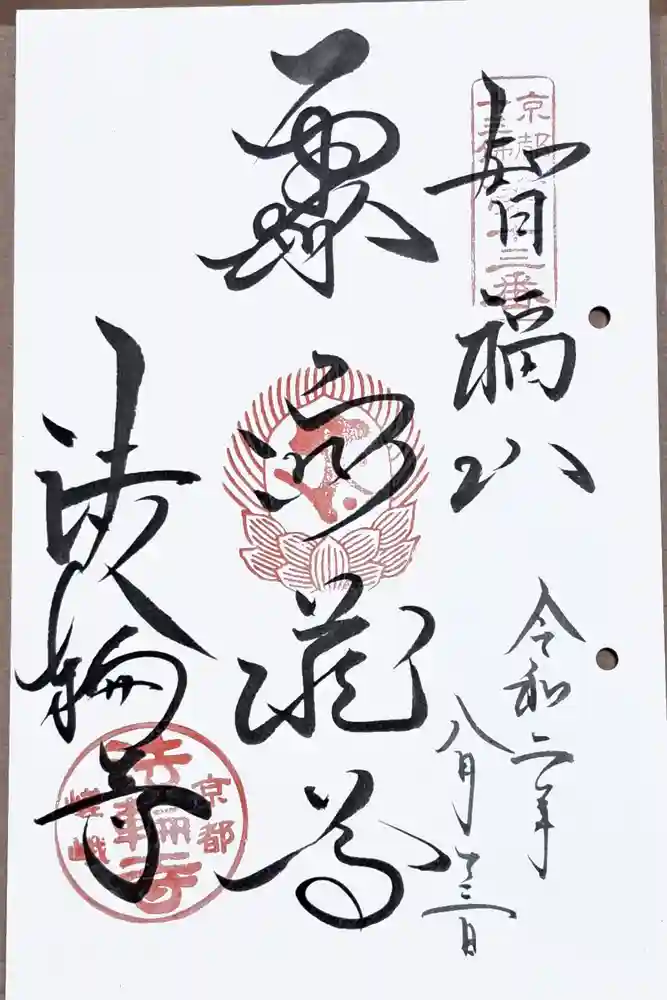 京都
十三佛
十三番
智福山
令和二年
八月十三日
虚空蔵尊
法輪寺
京都
法輪寺
嵯峨